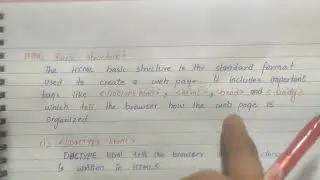 HTML Basic structure:
The HTML basic structure is the standard format
used to create a web page. It includes important
tags like <!DOCTYPE html>, <html>, <head> and <body>
which tell the browser how the web page is
organized
1) <!DOCTYPE html>
DOCTYPE html tell the browser
is written in HTML5